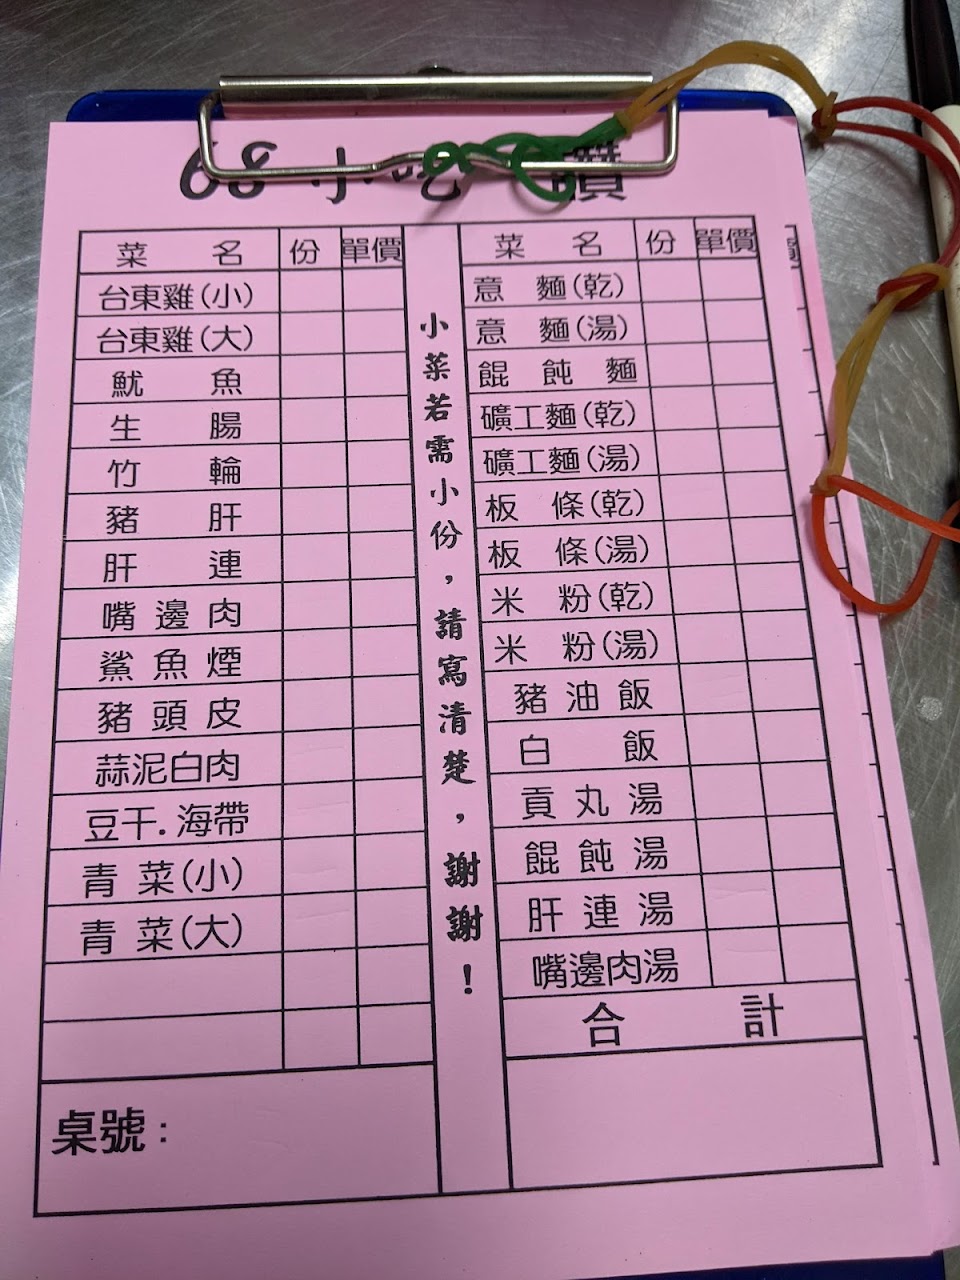 68 小吃 讚
菜名 份 單價
台東雞(小)
台東雞(大)
魷魚
生腸
竹輪
豬肝
肝連
嘴邊肉
鯊魚煙
豬頭皮
蒜泥白肉
豆干.海帶
青菜(小)
青菜(大)
桌號：
小菜若需小份，請寫清楚，謝謝！
菜名 份 單價
意麵(乾)
意麵(湯)
餛飩麵
礦工麵(乾)
礦工麵(湯)
板條(乾)
板條(湯)
米粉(乾)
米粉(湯)
豬油飯
白飯
貢丸湯
餛飩湯
肝連湯
嘴邊肉湯
合計